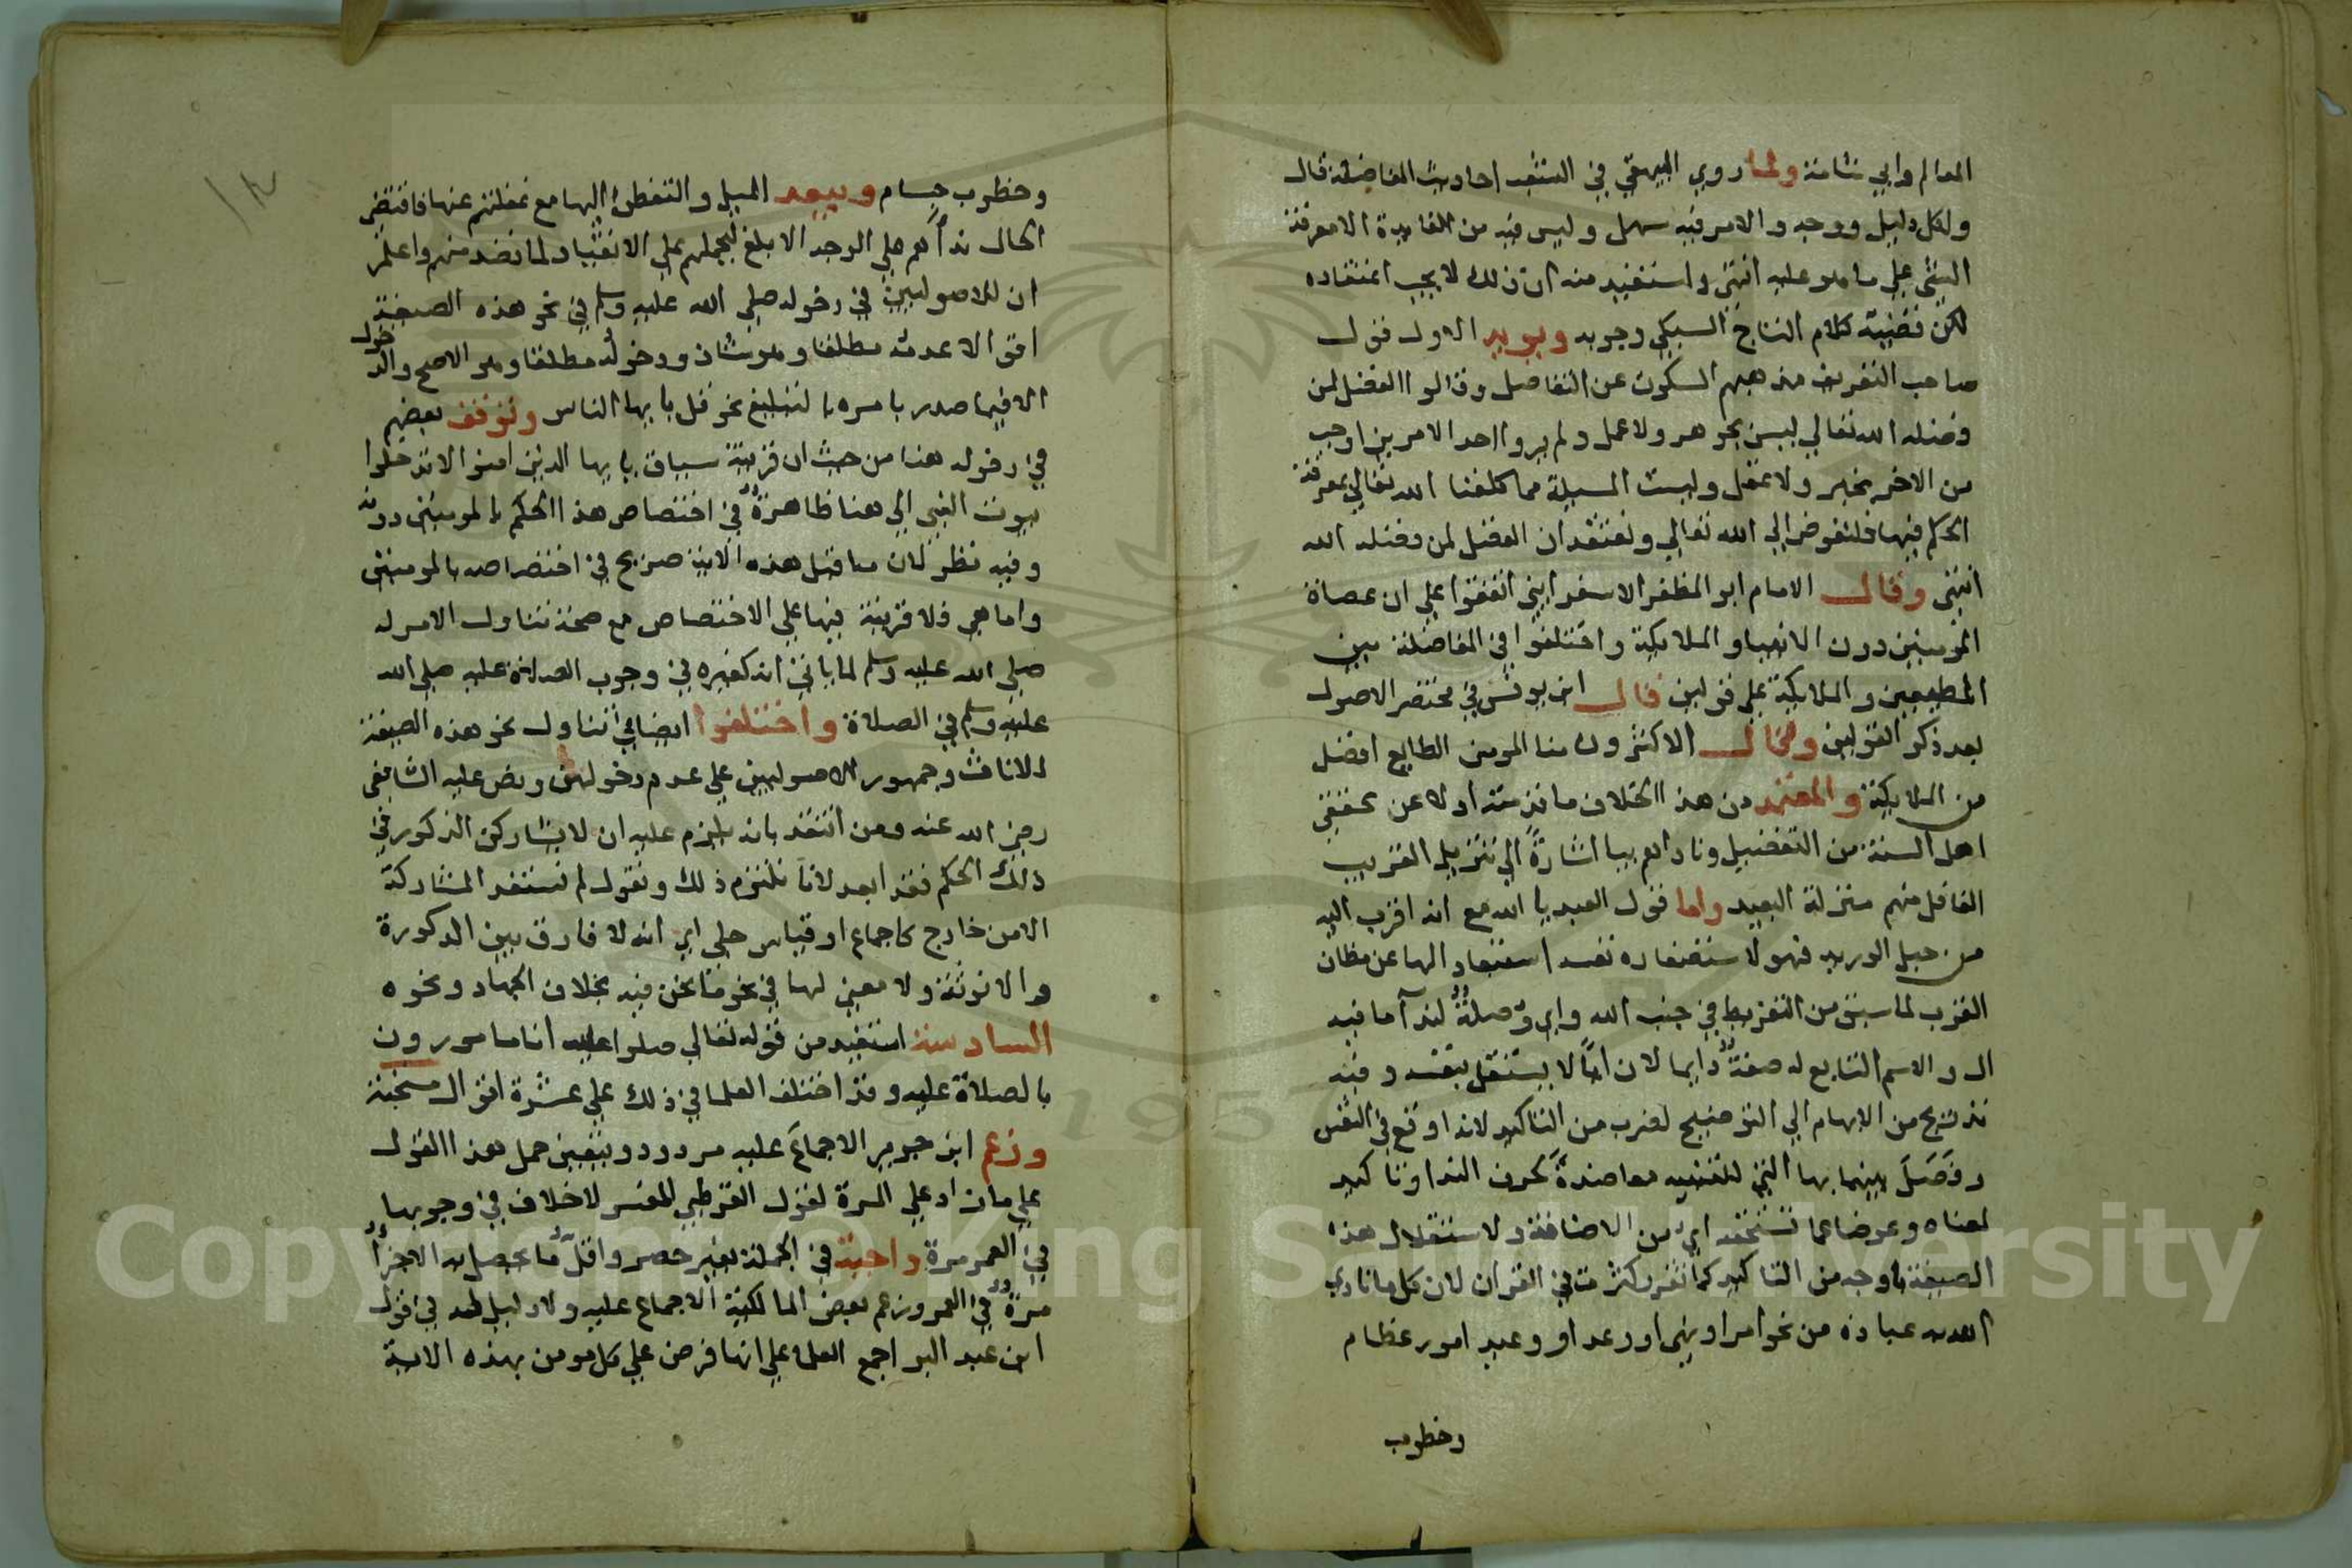 المعالم وابي شامة ولما روي البيهقي في الشعب احاديث المفاضلة قال
ولكل دليل ووجه والامر فيه سهل وليس فيه من الفايدة الا معرفة
الشي علي ما هو عليه انتهي واستفيد منه ان ذلك لا يجب اعتقاده
لكن قضية كلام التاج السبكي وجوبه ويويد الاول قول
صاحب التعريف مذهبهم السكوت عن التفاضل وقالوا الفضل لمن
فضله الله تعالي ليس بجوهر ولا عمل ولم يروا احد الامرين اوجب
من الاخر بخبر ولا عقل وليست المسيلة مما كلفنا الله تعالي بمعرفة
الحكم فيها فلنفوض الي الله تعالي ونعتقد ان الفضل لمن فضله الله
انتهي وقال الامام ابو المظفر الاسفرايني اتفقوا علي ان عصاة
المومنين دون الانبيا والملايكة واختلفوا في المفاضلة بين
المطيعين والملايكة علي قولين قال ابن يونس في مختصر الاصول
بعد ذكر القولين وقال الاكثرون منا المومن الطايع افضل
من الملايكة والمعتمد من هذا الخلاف ما قدمته اولا عن محققي
اهل السنة من التفضيل وناداهم بيا اشارة الي تنزيل القريب
الغافل منهم منزلة البعيد واما قول العبد يا الله مع انه اقرب اليه
من حبل الوريد فهو لاستقصاره نفسه استبعاد الها عن مظان
القرب لما سبق من التفريط في جنب الله واي وصلة لندا ما فيه
ال والاسم التابع له صفة دايما لان ايا لا يستقل بنفسه وفيه
تدريج من الابهام الي التوضيح لضرب من التاكيد لانه اوقع في النفس
وفصل بينهما بها التي للتنبيه معاضدة لحرف الندا وتاكيد
لمعناه وعوضا عما تستحقه اي من الاضافة ولاستقلال هذه
الصيغة باوجه من التاكيد كما تقرر كثرت في القران لان كل ما نادي
الله به عباده من نحو امر او نهي او وعد او وعيد امور عظام
وخطوب
وخطوب جسام ويبعد الميل والتفطن اليها مع غفلتهم عنها فاقتضي
الحال نداهم علي الوجه الابلغ ليحملهم علي الانقياد لما قصد منهم واعلم
ان للاصوليين في دخوله صلي الله عليه وسلم في نحو هذه الصيغة
اقوالا عدمه مطلقا وهو شاذ ودخوله مطلقا وهو الاصح والدخول
الا فيما صدر بامره بالتبليغ نحو قل يا يها الناس وتوقف بعضهم
في دخوله هنا من حيث ان قرينة سياق يا يها الذين امنوا لا تدخلوا
بيوت النبي الي هنا ظاهرة في اختصاص هذا الحكم بالمومنين دونه
وفيه نظر لان ما قبل هذه الاية صريح في اختصاصه بالمومنين
واما هي فلا قرينة فيها علي الاختصاص مع صحة تناول الامر له
صلي الله عليه وسلم لما ياتي انه كغيره في وجوب الصلاة عليه صلي الله
عليه وسلم في الصلاة واختلفوا ايضا في تناول نحو هذه الصيغة
للاناث وجمهور الاصوليين علي عدم دخولهن ونص عليه الشافعي
رضي الله عنه ومن انتقد بانه يلزم عليه ان لا يشاركن الذكور في
ذلك الحكم فقد ابعد لانا نلتزم ذلك ونقول لم تستفد المشاركة
الا من خارج كاجماع او قياس جلي اي انه لا فارق بين الذكورة
والانوثة ولا معين لها في نحو ما نحن فيه بخلاف الجهاد ونحوه
السادسة استفيد من قوله تعالي صلوا عليه انا مامورون
بالصلاة عليه وقد اختلف العلما في ذلك علي عشرة اقوال مستحبة
وزعم ابن جرير الاجماع عليه مردود ويتعين حمل هذا القول
علي ما زاد علي المرة لقول القرطبي المفسر لا خلاف في وجوبها
في العمر مرة واجبة في الجملة بغير حصر واقل ما يحصل به الاجزا
مرة في العمر وزعم بعض المالكية الاجماع عليه ولا دليل له في قول
ابن عبد البر اجمع العلما علي انها فرض علي كل مومن بهذه الاية